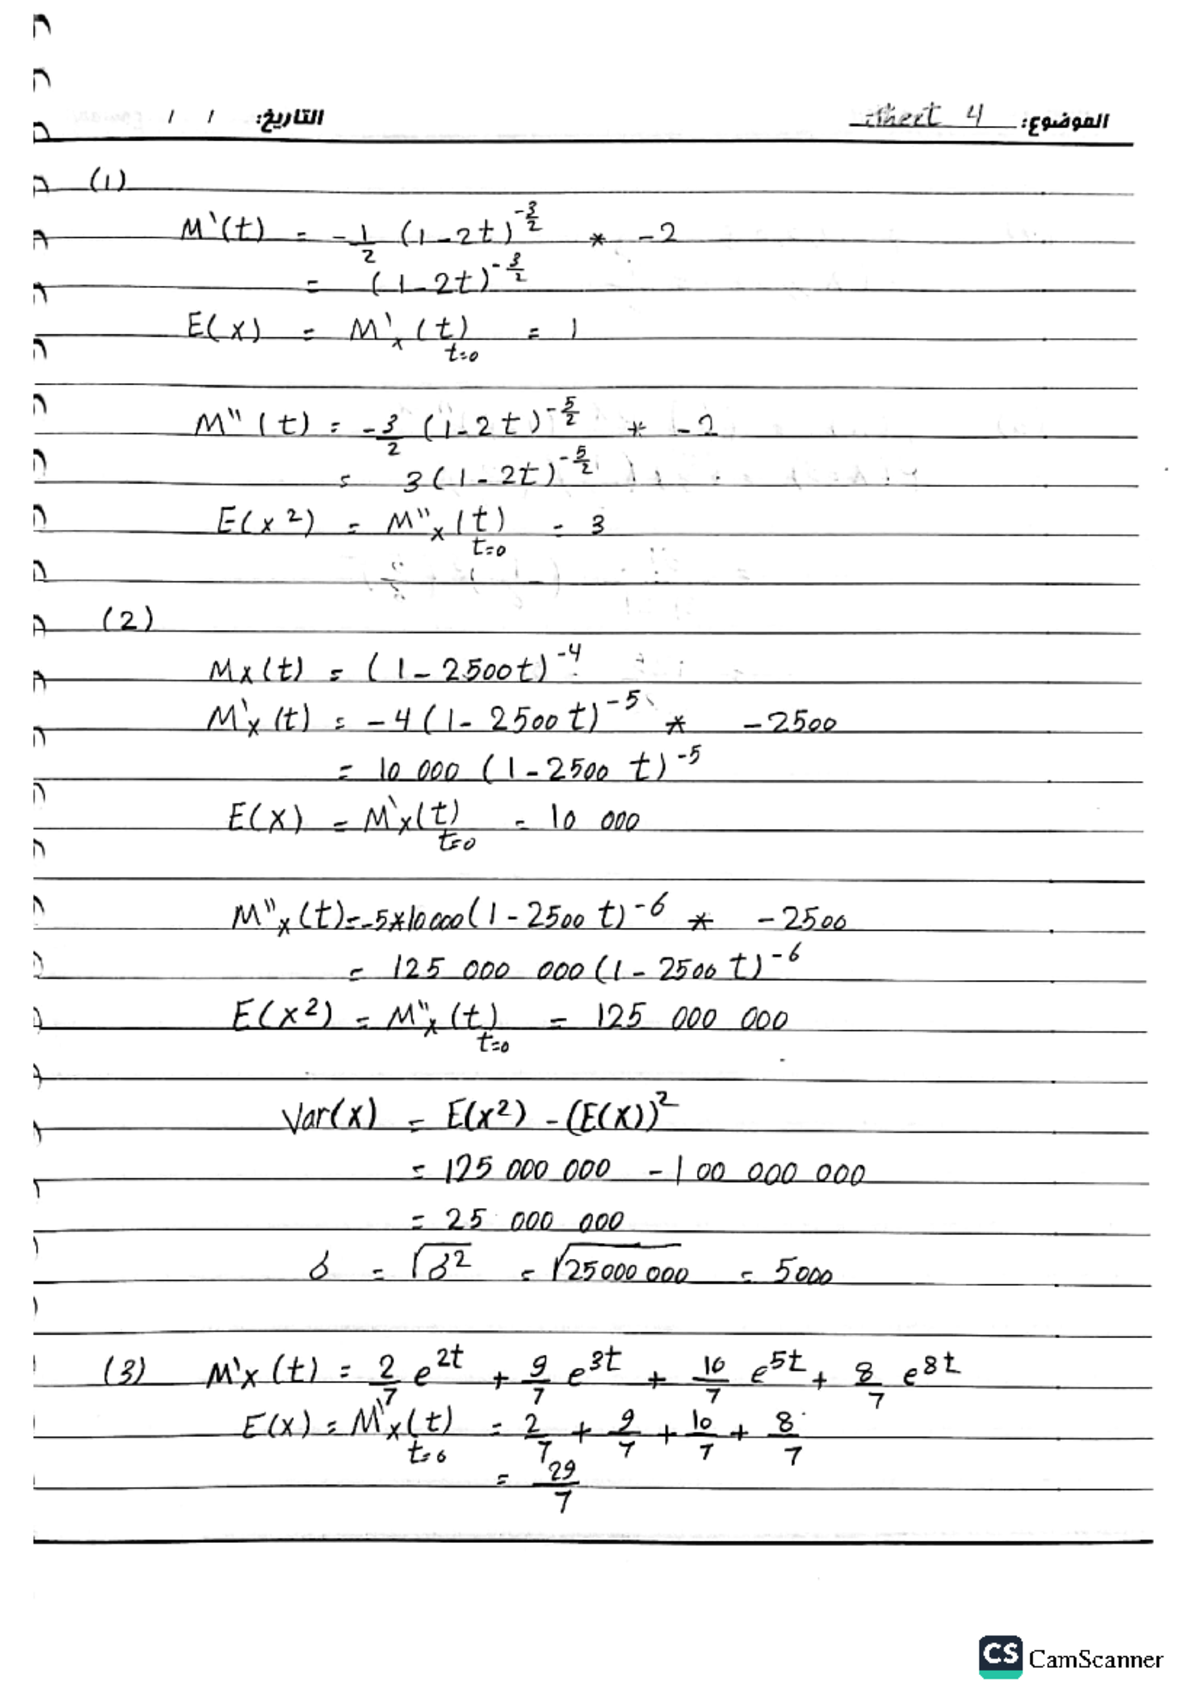 الموضوع: sheet 4 التاريخ: / /
(1)
M'(t) = -1/2 (1-2t)^-3/2 * -2
= (1-2t)^-3/2
E(x) = M'x(t) t=0 = 1
M"(t) = -3/2 (1-2t)^-5/2 * -2
= 3(1-2t)^-5/2
E(x²) = M"x(t) t=0 = 3
(2)
Mx(t) = (1-2500t)^-4
M'x(t) = -4(1-2500t)^-5 * -2500
= 10 000 (1-2500 t)^-5
E(x) = M'x(t) t=0 = 10 000
M"x(t)=-5*10000(1-2500 t)^-6 * -2500
= 125 000 000(1-2500 t)^-6
E(x²) = M"x(t) t=0 = 125 000 000
Var(x) = E(x²) - (E(x))²
= 125 000 000 - 100 000 000
= 25 000 000
δ = √δ² = √25000 000 = 5000
(3) M'x(t) = 2/7 e^2t + 9/7 e^3t + 10/7 e^5t + 8/7 e^8t
E(x) = M'x(t) t=0 = 2/7 + 9/7 + 10/7 + 8/7
= 29/7
CS CamScanner